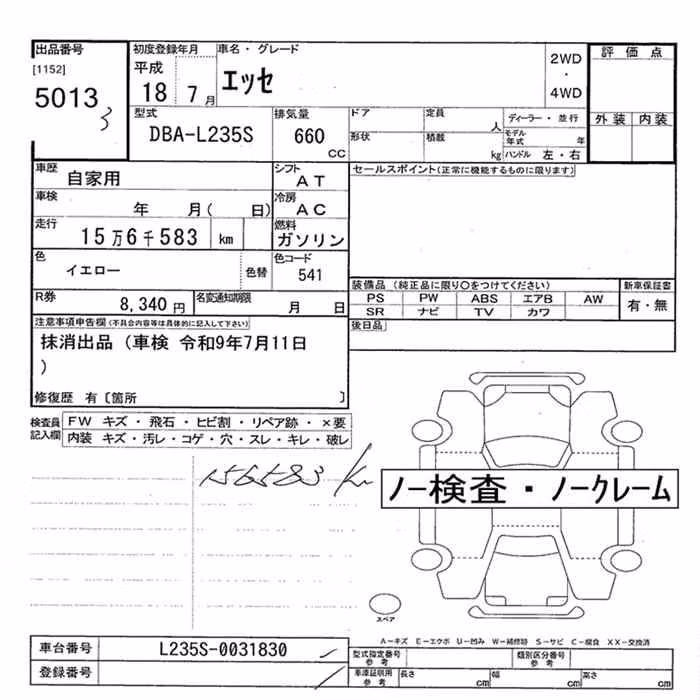 出品番号
[1152]
5013
3
初度登録年月
平成
18 7月
車名・グレード
エッセ
2WD
・
4WD
評価点
外装 内装
型式
DBA-L235S
排気量
660
CC
ドア
定員
人
ディーラー・並行
形状
積載
kg
モデル年式
年
ハンドル 左・右
車歴
自家用
シフト
AT
セールスポイント(正常に機能するものに限ります)
車検
年 月( 日)
冷房
AC
走行
15万6千583 km
燃料
ガソリン
色
イエロー
色替
色コード
541
装備品 (純正品に限り○をつけてください)
新車保証書
PS PW ABS エアB AW
有・無
SR ナビ TV カワ
R券
8,340 円
名変通知期限
月 日
後日品
注意事項申告欄(不具合内容等は具体的に記入して下さい)
抹消出品 (車検 令和9年7月11日
)
修復歴 有〔箇所 〕
検査員
記入欄
FW キズ・飛石・ヒビ割・リペア跡・×要
内装 キズ・汚レ・コゲ・穴・スレ・キレ・破レ
156583 km
ノー検査・ノークレーム
スペア
A-キズ E-エクボ U-凹み W-補修跡 S-サビ C-腐食 XX-交換済
車台番号
L235S-0031830
登録番号
型式指定番号
参考
類別区分番号
参考
車庫証明用
参考
長さ
cm
幅
cm
高さ
cm